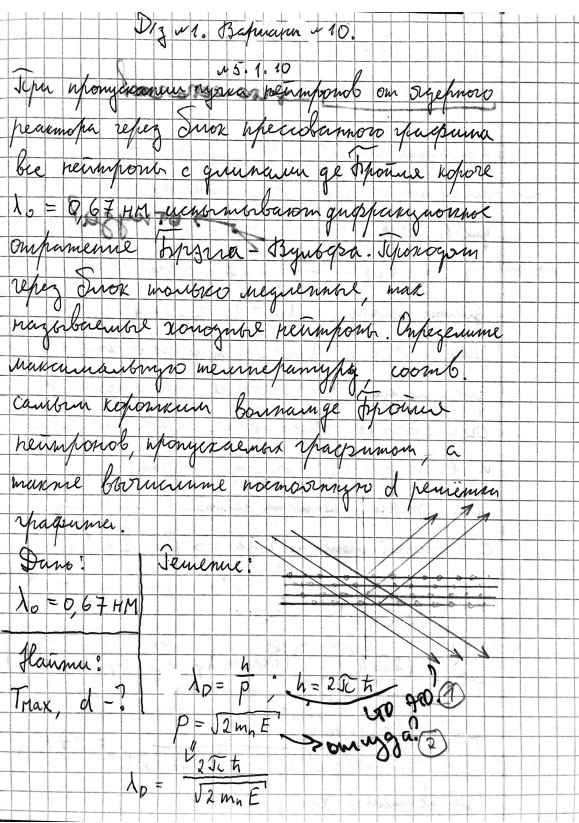 D/з №1. Вариант №10.
№5.1.10
При пропускании пучка нейтронов от ядерного
реактора через блок прессованного графита
все нейтроны с длинами де Бройля короче
λ₀ = 0,67 нм испытывают дифракционное
отражение Брэгга - Вульфа. Проходят
через блок только медленные, так
называемые холодные нейтроны. Определите
максимальную температуру, соотв.
самым коротким волнам де Бройля
нейтронов, пропускаемых графитом, а
также вычислите постоянную d решётки
графита.
Дано:
λ₀ = 0,67 нм
Найти:
Tmax, d - ?
Решение:
λ_D = h/p ; h = 2πħ
что это? ①
p = √(2m_n E) → откуда? ②
λ_D = 2πħ/√(2m_n E)